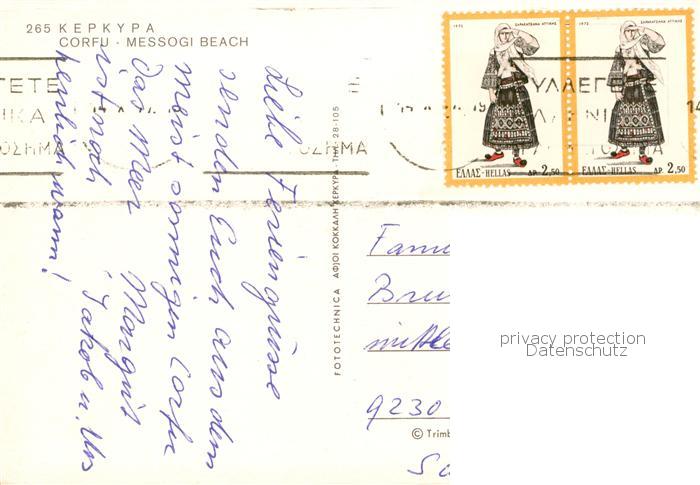 265 ΚΕΡΚΥΡΑ
CORFU - MESSOGI BEACH
Liebe Feriengrüsse
senden Euch aus dem
meist sonnigen Corfu
Das Meer
ist noch
herrlich warm!
Margrit
Jakob u. Urs
FOTOTECHNICA ΑΦΙΟΙ ΚΟΚΚΑΛΗ ΚΕΡΚΥΡΑ · ΤΗΛ. 28-105
1972 ΣΑΡΑΚΑΤΣΑΝΑ ΑΤΤΙΚΗΣ
ΕΛΛΑΣ-HELLAS ΔΡ. 2,50
1972 ΣΑΡΑΚΑΤΣΑΝΑ ΑΤΤΙΚΗΣ
ΕΛΛΑΣ-HELLAS ΔΡ. 2,50
ΓΕΤΕ
ΝΙΚΑ
ΟΣΗΜΑ
ΥΛΛΕΓΕ
14
Fam
Bru
mittle
9230
© Trimb
privacy protection
Datenschutz